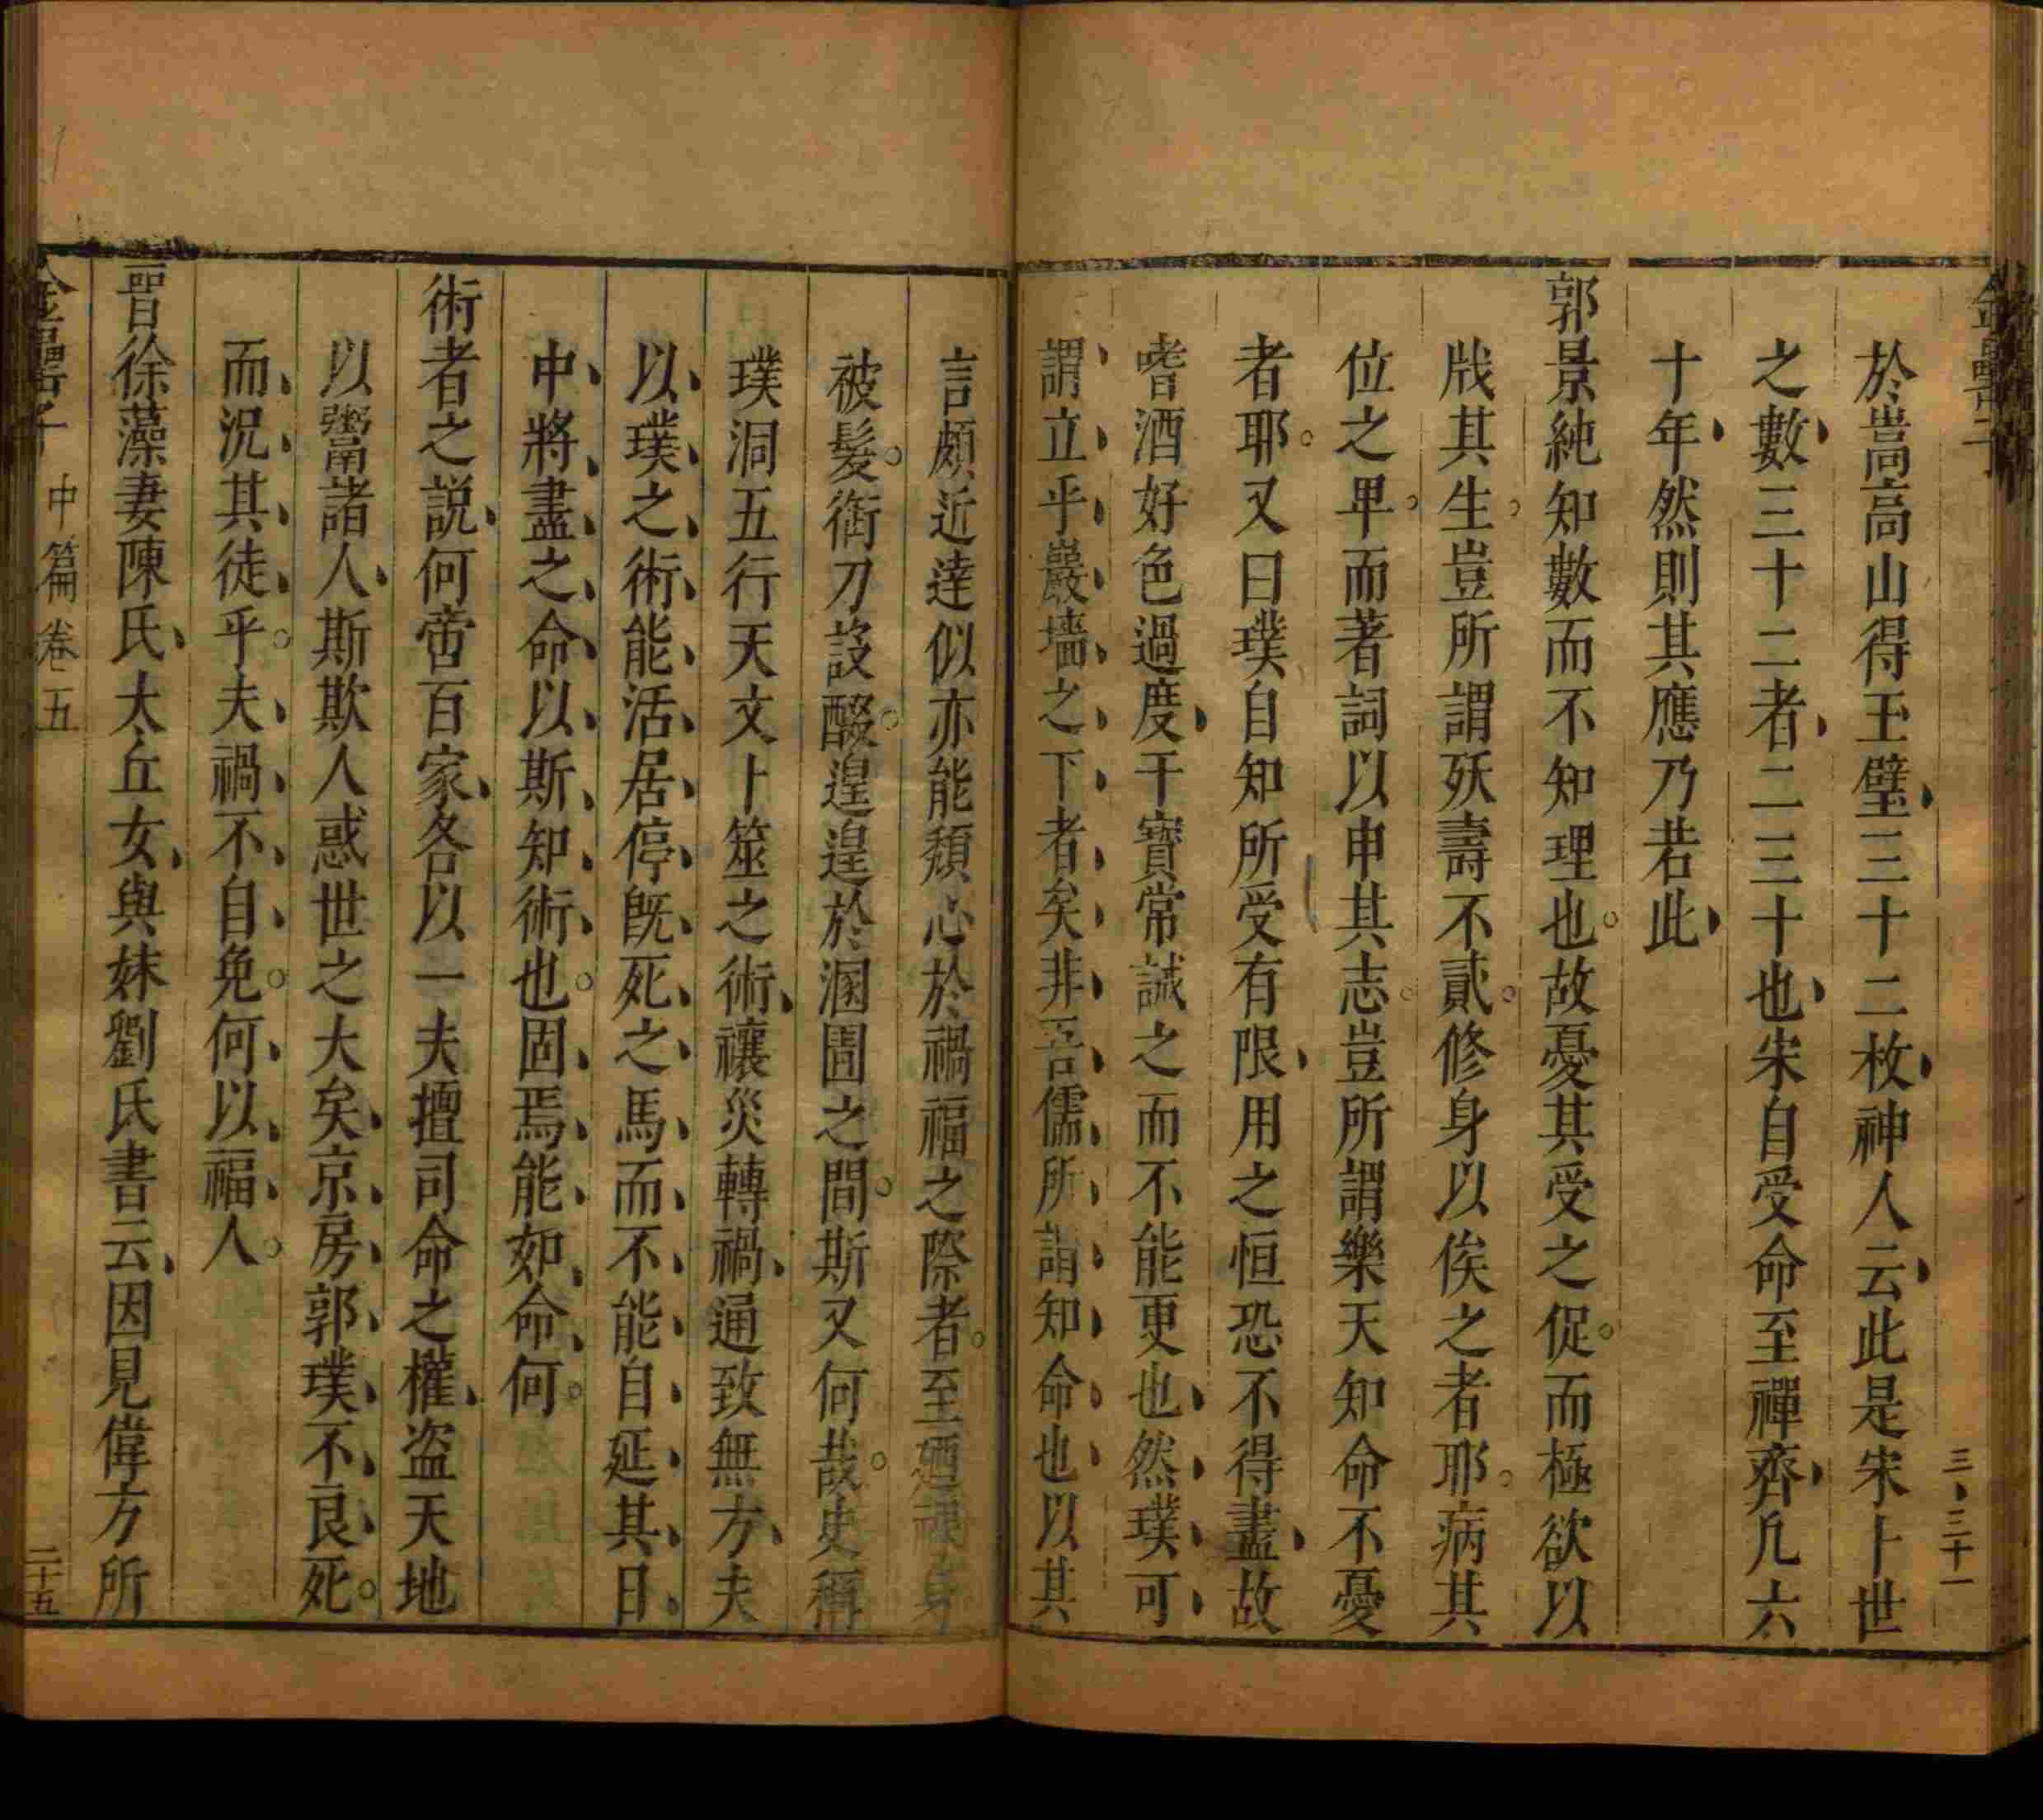 於嵩高山得玉璧三十二枚神人云此是宋卜世
之數三十二者二三十也宋自受命至禪齊凡六
十年然則其應乃若此
郭景純知數而不知理也故憂其受之促而極欲以
戕其生豈所謂殀壽不貳修身以俟之者耶病其
位之卑而著詞以申其志豈所謂樂天知命不憂
者耶又曰璞自知所受有限用之恒恐不得盡故
嗜酒好色過度干寶常誡之而不能更也然璞可
謂立乎巖墻之下者矣非吾儒所謂知命也以其
言頗近達似亦能頹心於禍福之際者至廼裸身
被髮銜刀設醊遑遑於溷圊之間斯又何哉史稱
璞洞五行天文卜筮之術禳災轉禍通致無方夫
以璞之術能活居停旣死之馬而不能自延其日
中將盡之命以斯知術也固焉能如命何
術者之説何啻百家各以一夫擅司命之權盗天地
以鬻諸人斯欺人惑世之大矣京房郭璞不良死
而况其徒乎夫禍不自免何以福人
晋徐藻妻陳氏太丘女與妹劉氏書云因見偉方所
金罍子 中篇卷五 二十五